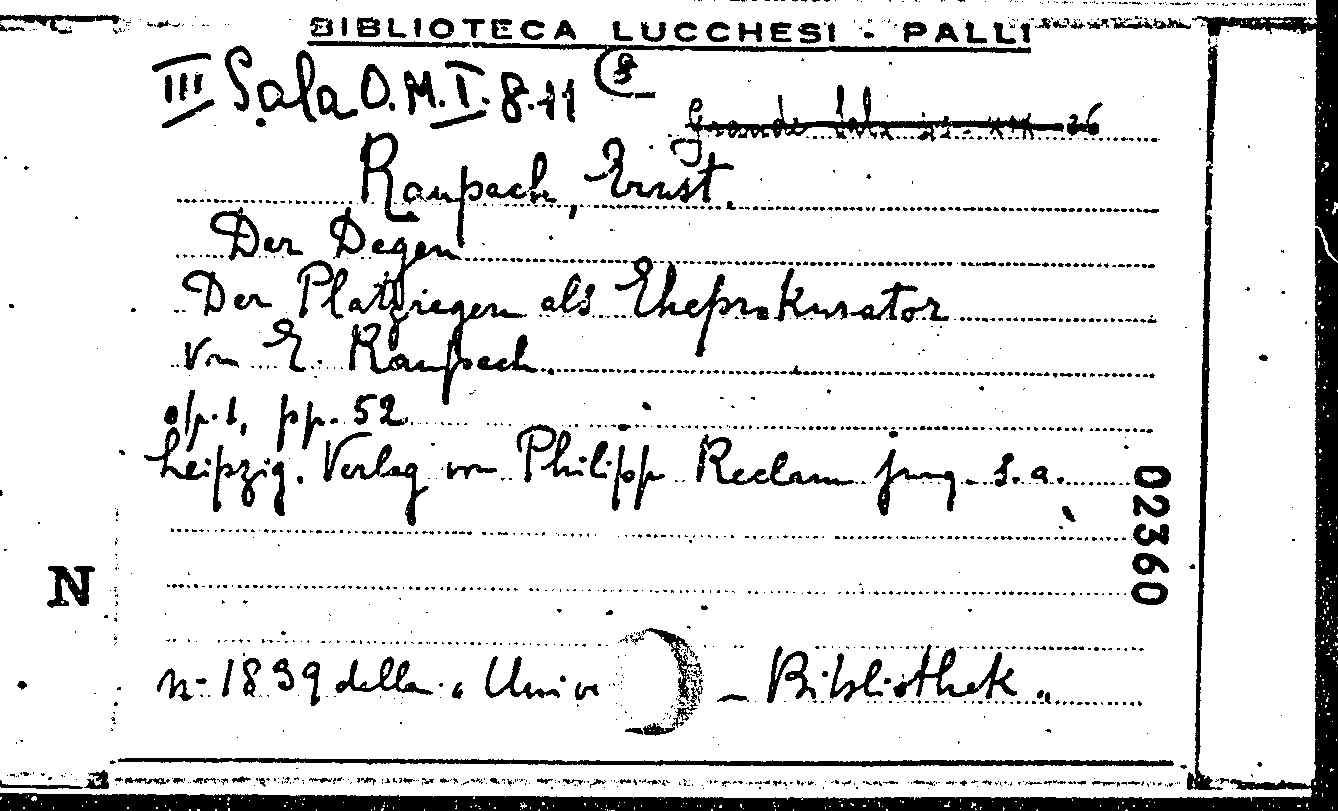 BIBLIOTECA LUCCHESI - PALLI
III Sala O.M.I. 8.11 (8
Grande Sala 26
Raupach, Ernst.
Der Degen
Der Platzregen als Eheprokurator
von E. Raupach.
op. 1, pp. 52
Leipzig. Verlag von Philipp Reclam jung. s.a.
02360
N
n. 1839 della " Unive – Bibliothek "